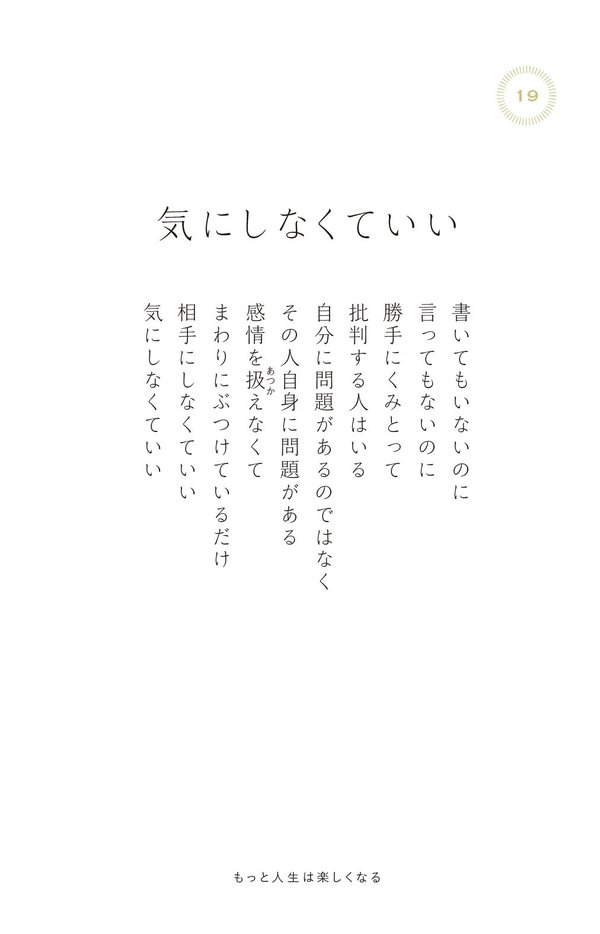 19
気にしなくていい
書いてもいないのに
言ってもないのに
勝手にくみとって
批判する人はいる
自分に問題があるのではなく
その人自身に問題がある
感情を扱えなくて
あつか
まわりにぶつけているだけ
相手にしなくていい
気にしなくていい
もっと人生は楽しくなる